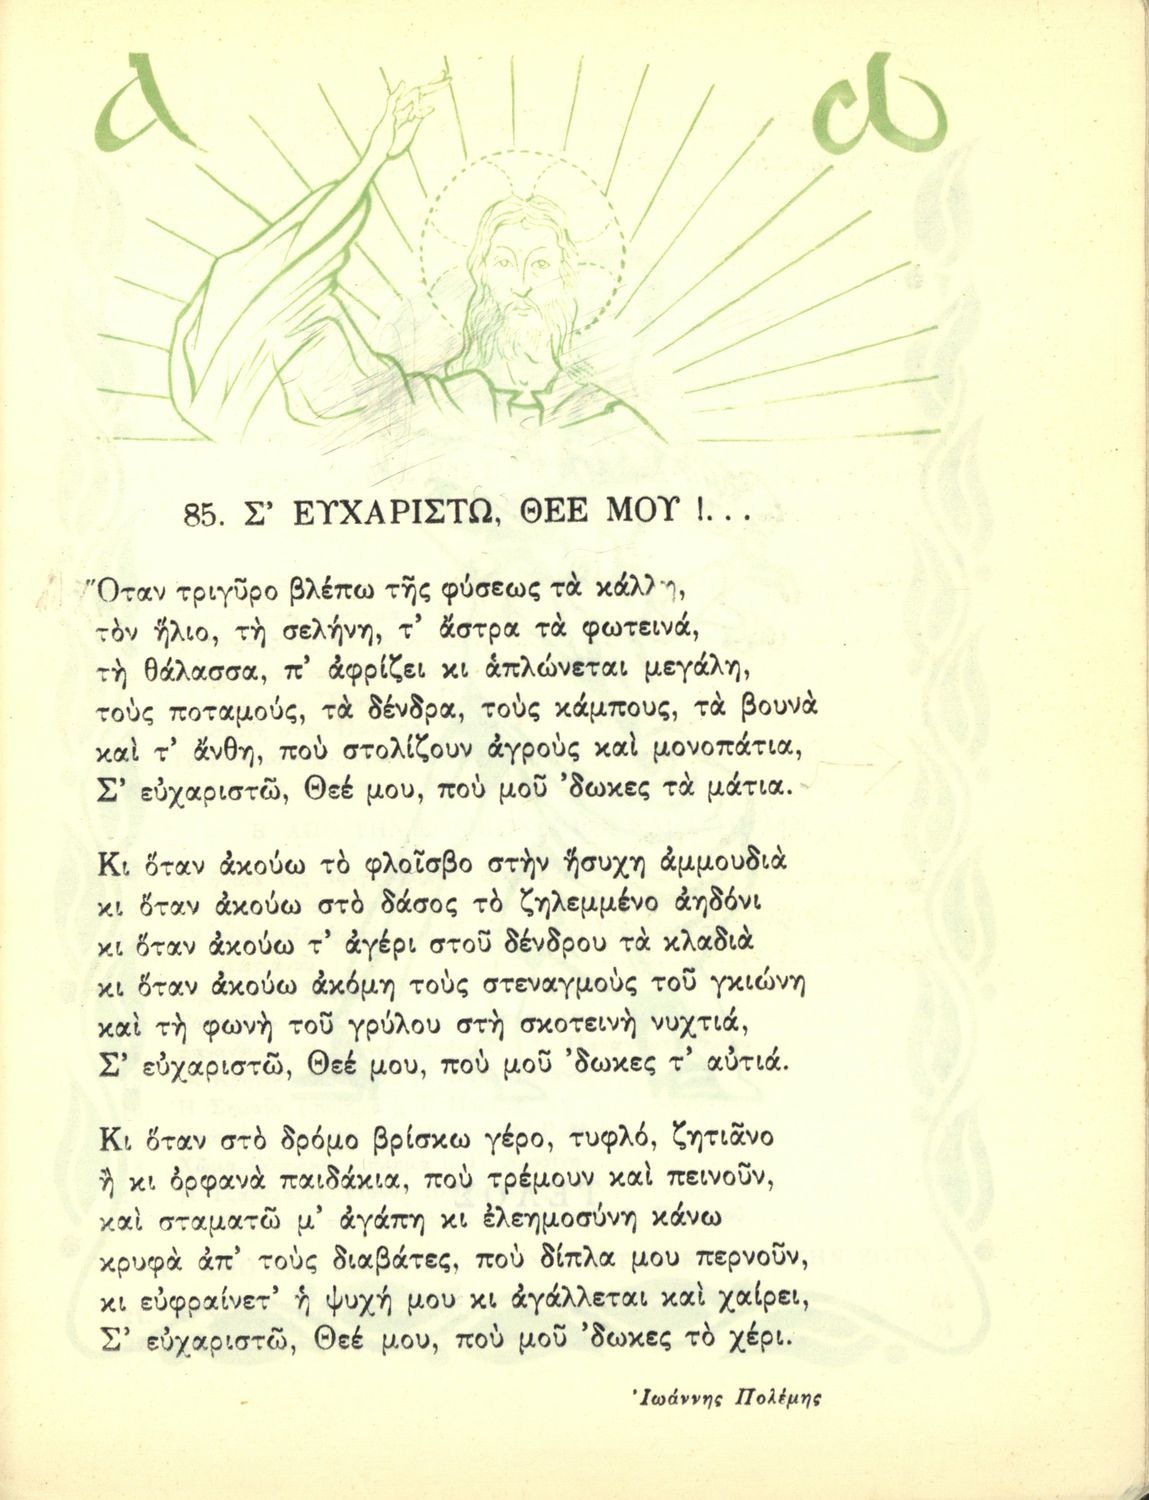 Α Ω
85. Σ’ ΕΥΧΑΡΙΣΤΩ, ΘΕΕ ΜΟΥ !...
Ὅταν τριγῦρο βλέπω τῆς φύσεως τὰ κάλλη,
τὸν ἥλιο, τὴ σελήνη, τ’ ἄστρα τὰ φωτεινά,
τὴ θάλασσα, π’ ἀφρίζει κι ἁπλώνεται μεγάλη,
τοὺς ποταμούς, τὰ δένδρα, τοὺς κάμπους, τὰ βουνὰ
καὶ τ’ ἄνθη, ποὺ στολίζουν ἀγροὺς καὶ μονοπάτια,
Σ’ εὐχαριστῶ, Θεέ μου, ποὺ μοῦ ’δωκες τὰ μάτια.
Κι ὅταν ἀκούω τὸ φλοῖσβο στὴν ἥσυχη ἀμμουδιὰ
κι ὅταν ἀκούω στὸ δάσος τὸ ζηλεμμένο ἀηδόνι
κι ὅταν ἀκούω τ’ ἀγέρι στοῦ δένδρου τὰ κλαδιὰ
κι ὅταν ἀκούω ἀκόμη τοὺς στεναγμοὺς τοῦ γκιώνη
καὶ τὴ φωνὴ τοῦ γρύλου στὴ σκοτεινὴ νυχτιά,
Σ’ εὐχαριστῶ, Θεέ μου, ποὺ μοῦ ’δωκες τ’ αὐτιά.
Κι ὅταν στὸ δρόμο βρίσκω γέρο, τυφλό, ζητιᾶνο
ἢ κι ὀρφανὰ παιδάκια, ποὺ τρέμουν καὶ πεινοῦν,
καὶ σταματῶ μ’ ἀγάπη κι ἐλεημοσύνη κάνω
κρυφὰ ἀπ’ τοὺς διαβάτες, ποὺ δίπλα μου περνοῦν,
κι εὐφραίνετ’ ἡ ψυχή μου κι ἀγάλλεται καὶ χαίρει,
Σ’ εὐχαριστῶ, Θεέ μου, ποὺ μοῦ ’δωκες τὸ χέρι.
Ἰωάννης Πολέμης